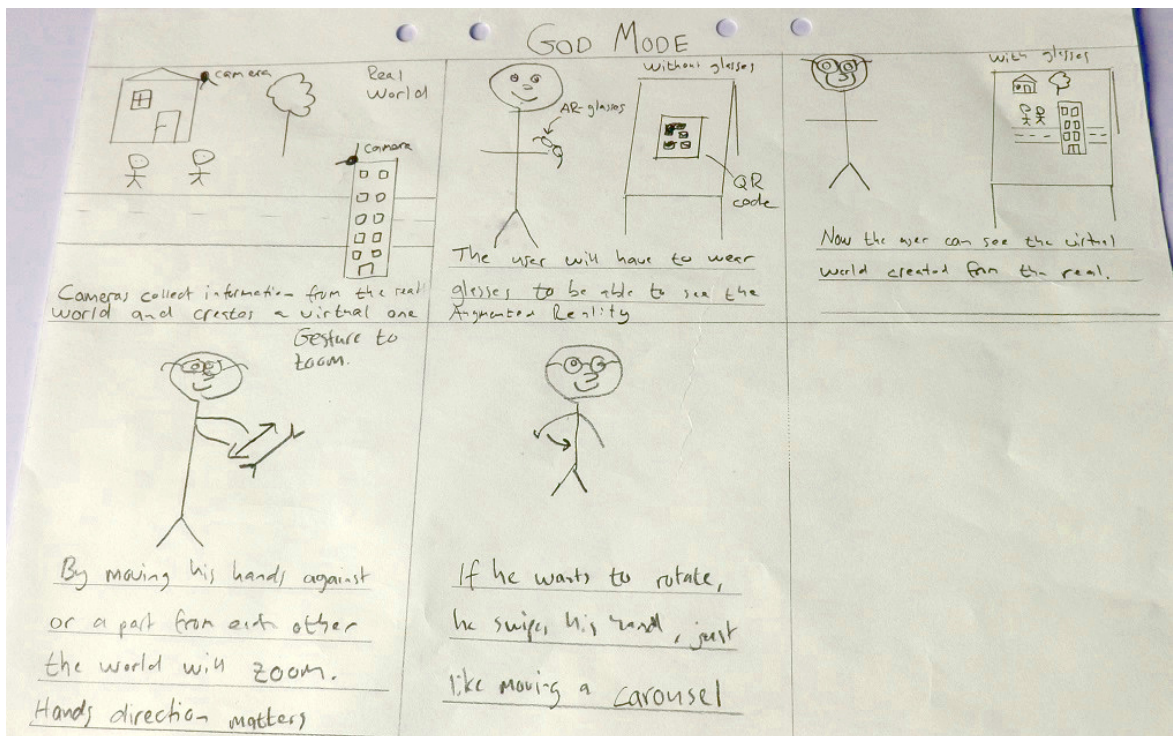 GOD MODE
camera
Real
World
camera
Cameras collect information from the real
world and creates a virtual one
AR-glasses
Without glasses
QR
code
The user will have to wear
glasses to be able to see the
Augmented Reality
With glasses
Now the user can see the virtual
world created from the real.
Gesture to
zoom.
By moving his hands against
or a part from each other
the world will zoom.
Hands direction matters
If he wants to rotate,
he swipes his hand, just
like moving a carousel